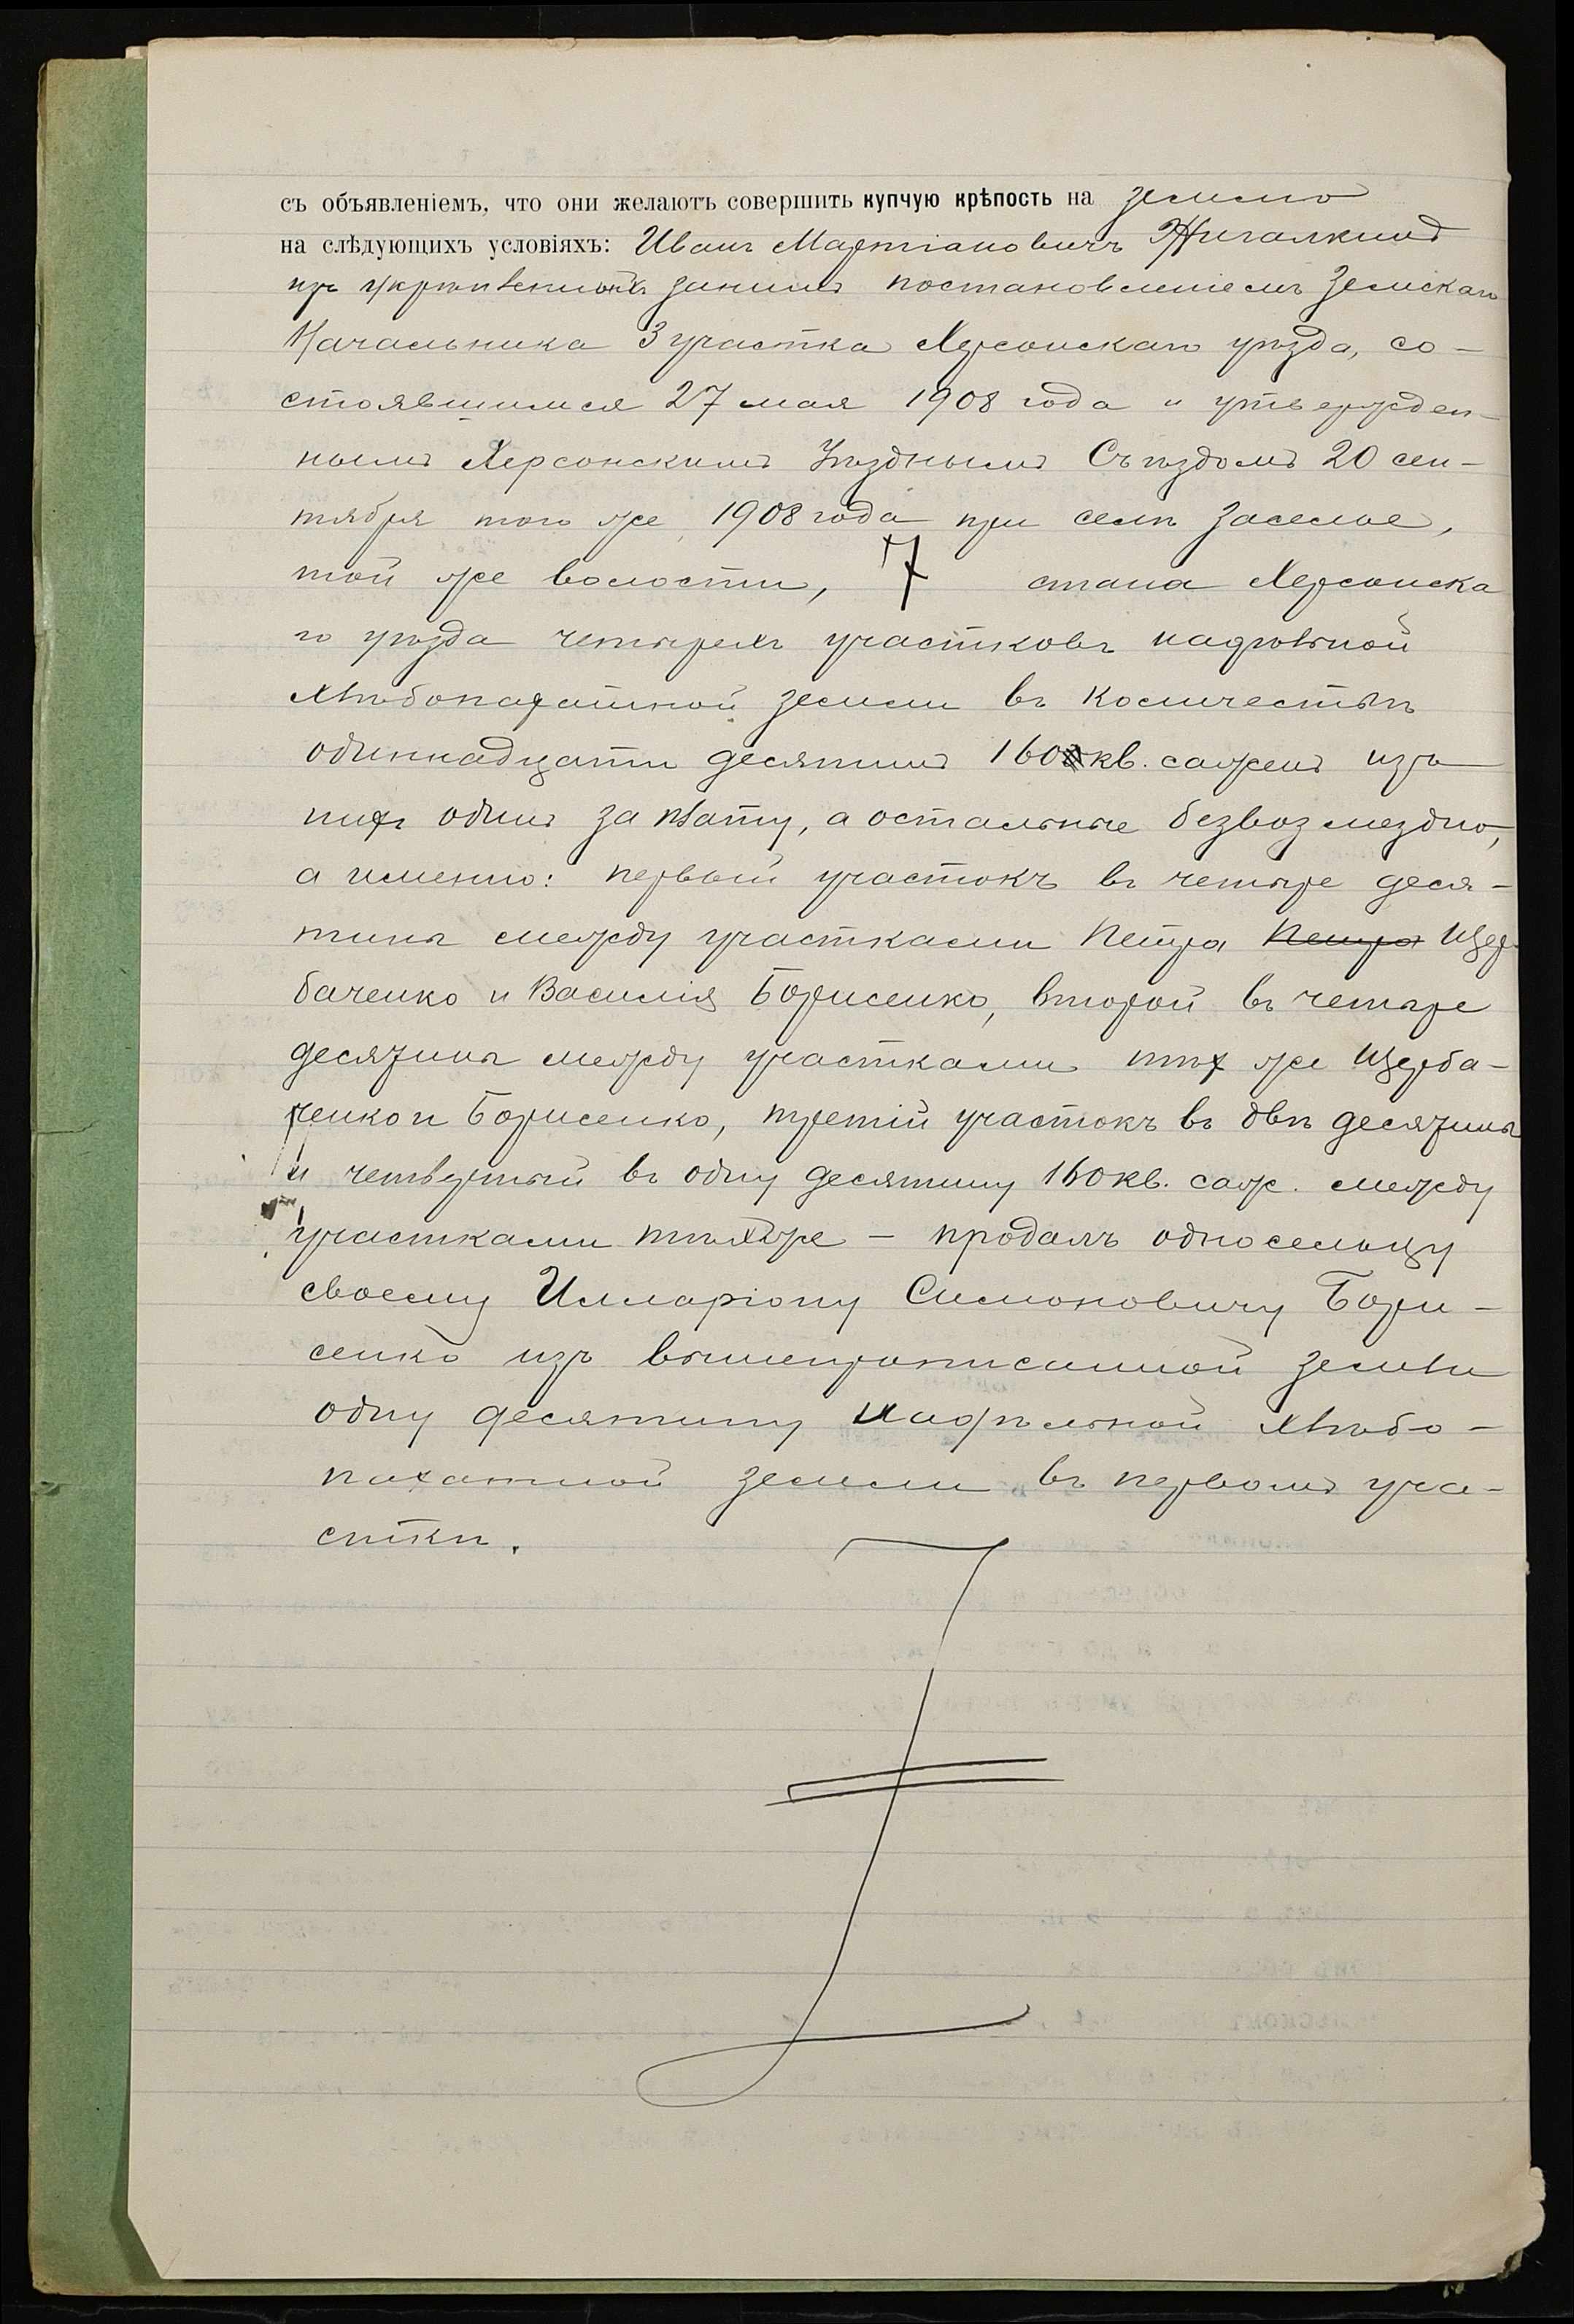 съ объявленіемъ, что они желаютъ совершить купчую крѣпость на землю
на слѣдующихъ условіяхъ: Иванъ Мартіановичъ Жигалкинъ
изъ укрѣпленныхъ за нимъ постановленіемъ Земскаго
Начальника 3 участка Херсонскаго уѣзда, со-
стоявшимся 27 мая 1908 года и утвержден-
нымъ Херсонскимъ Уѣзднымъ Съѣздомъ 20 сен-
тября того же 1908 года при селѣ Заселье,
той же волости, 7 стана Херсонска
го уѣзда четырехъ участковъ надѣльной
хлѣбопахатной земли въ количествѣ
одиннадцати десятинъ 160 кв. сажень изъ
нихъ одинъ за плату, а остальные безвозмездно,
а именно: первый участокъ въ четыре деся-
тины между участками Петра Петра Щер-
баченко и Василія Борисенко, второй въ четыре
десятины между участками тѣх же Щерба-
ченко и Борисенко, третій участокъ въ двѣ десятины
и четвертый въ одну десятину 160 кв. саж. между
участками тѣхъ же – продалъ односельцу
своему Илларіону Симоновичу Бори-
сенко изъ вышепрописанной земли
одну десятину надѣльной хлѣбо-
пахатной земли въ первомъ уча-
сткѣ.